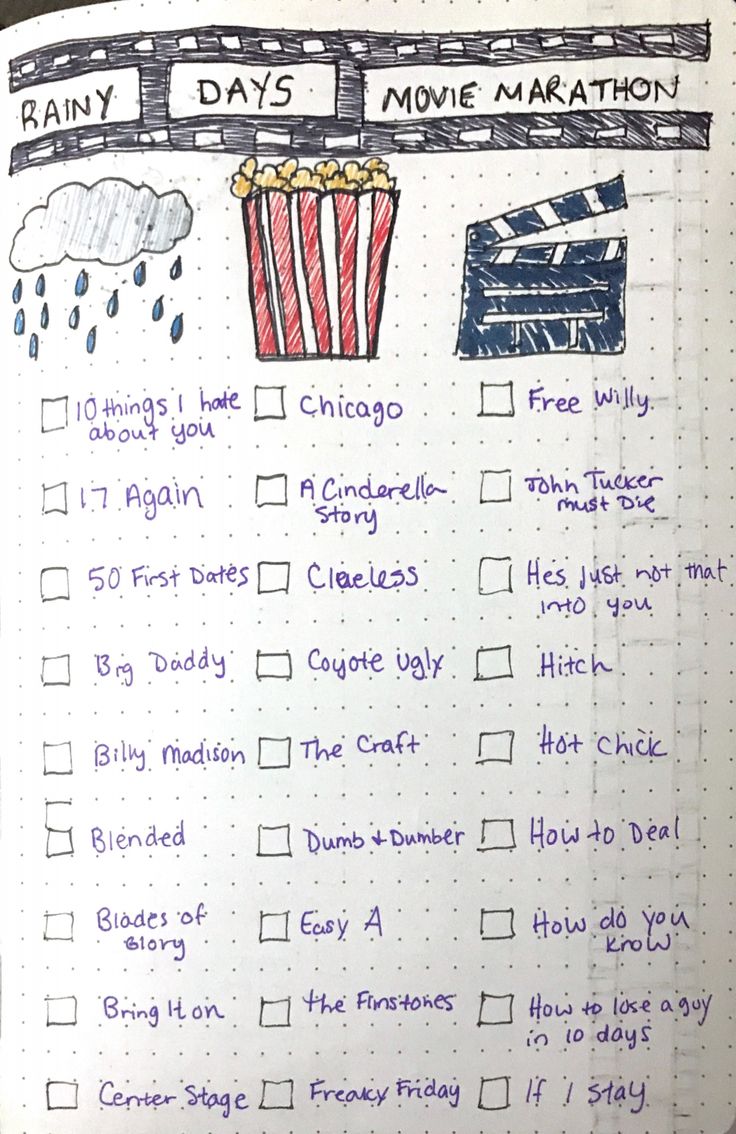 RAINY DAYS MOVIE MARATHON
10 things I hate
about you
17 Again
50 First Dates
Big Daddy
Billy Madison
Blended
Blades of
Glory
Bring It on
Center Stage
Chicago
A Cinderella
Story
Clueless
Coyote Ugly
The Craft
Dumb + Dumber
Easy A
the Flinstones
Freaky Friday
Free Willy
John Tucker
must Die
Hes just not that
into you
Hitch
Hot Chick
How to Deal
How do you
know
How to lose a guy
in 10 days
If I stay